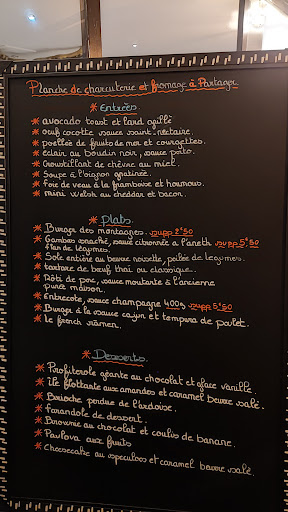 Planche de charcuterie et fromage à Partager
* Entrées
* avocado toast et lard grillé
* oeuf cocotte sauce saint nectaire.
* poellée de fruits de mer et courgettes.
* eclair au boudin noir, sauce porto.
* Croustillant de chèvre au miel.
* Soupe à l'oignon gratinée.
* foie de veau à la framboise et houmous.
* mini welsh au cheddar et bacon.
* Plats.
* Burger des montagnes. supp 2€50
* Gambas snackée, sauce citronnée a l'aneth supp 5€50
flan de légumes.
* Sole entière au beurre noisette, poêlée de legumes.
* tartare de bœuf thaï ou classique.
* Rôti de porc, sauce moutarde à l'ancienne
purée maison.
* Entrecote, sauce champagne 400g supp 5€50
* Burger à la sauce cajun et tempura de poulet.
* Le french ramen.
* Desserts.
* Profiterole géante au chocolat et glace vanille.
* île flottante aux amandes et caramel beurre salé.
* Brioche perdue de l'ardoise.
* farandole de dessert.
* Brownie au chocolat et coulis de banane.
* Pavlova aux fruits
* Cheesecake au speculoos et caramel beurre salé.